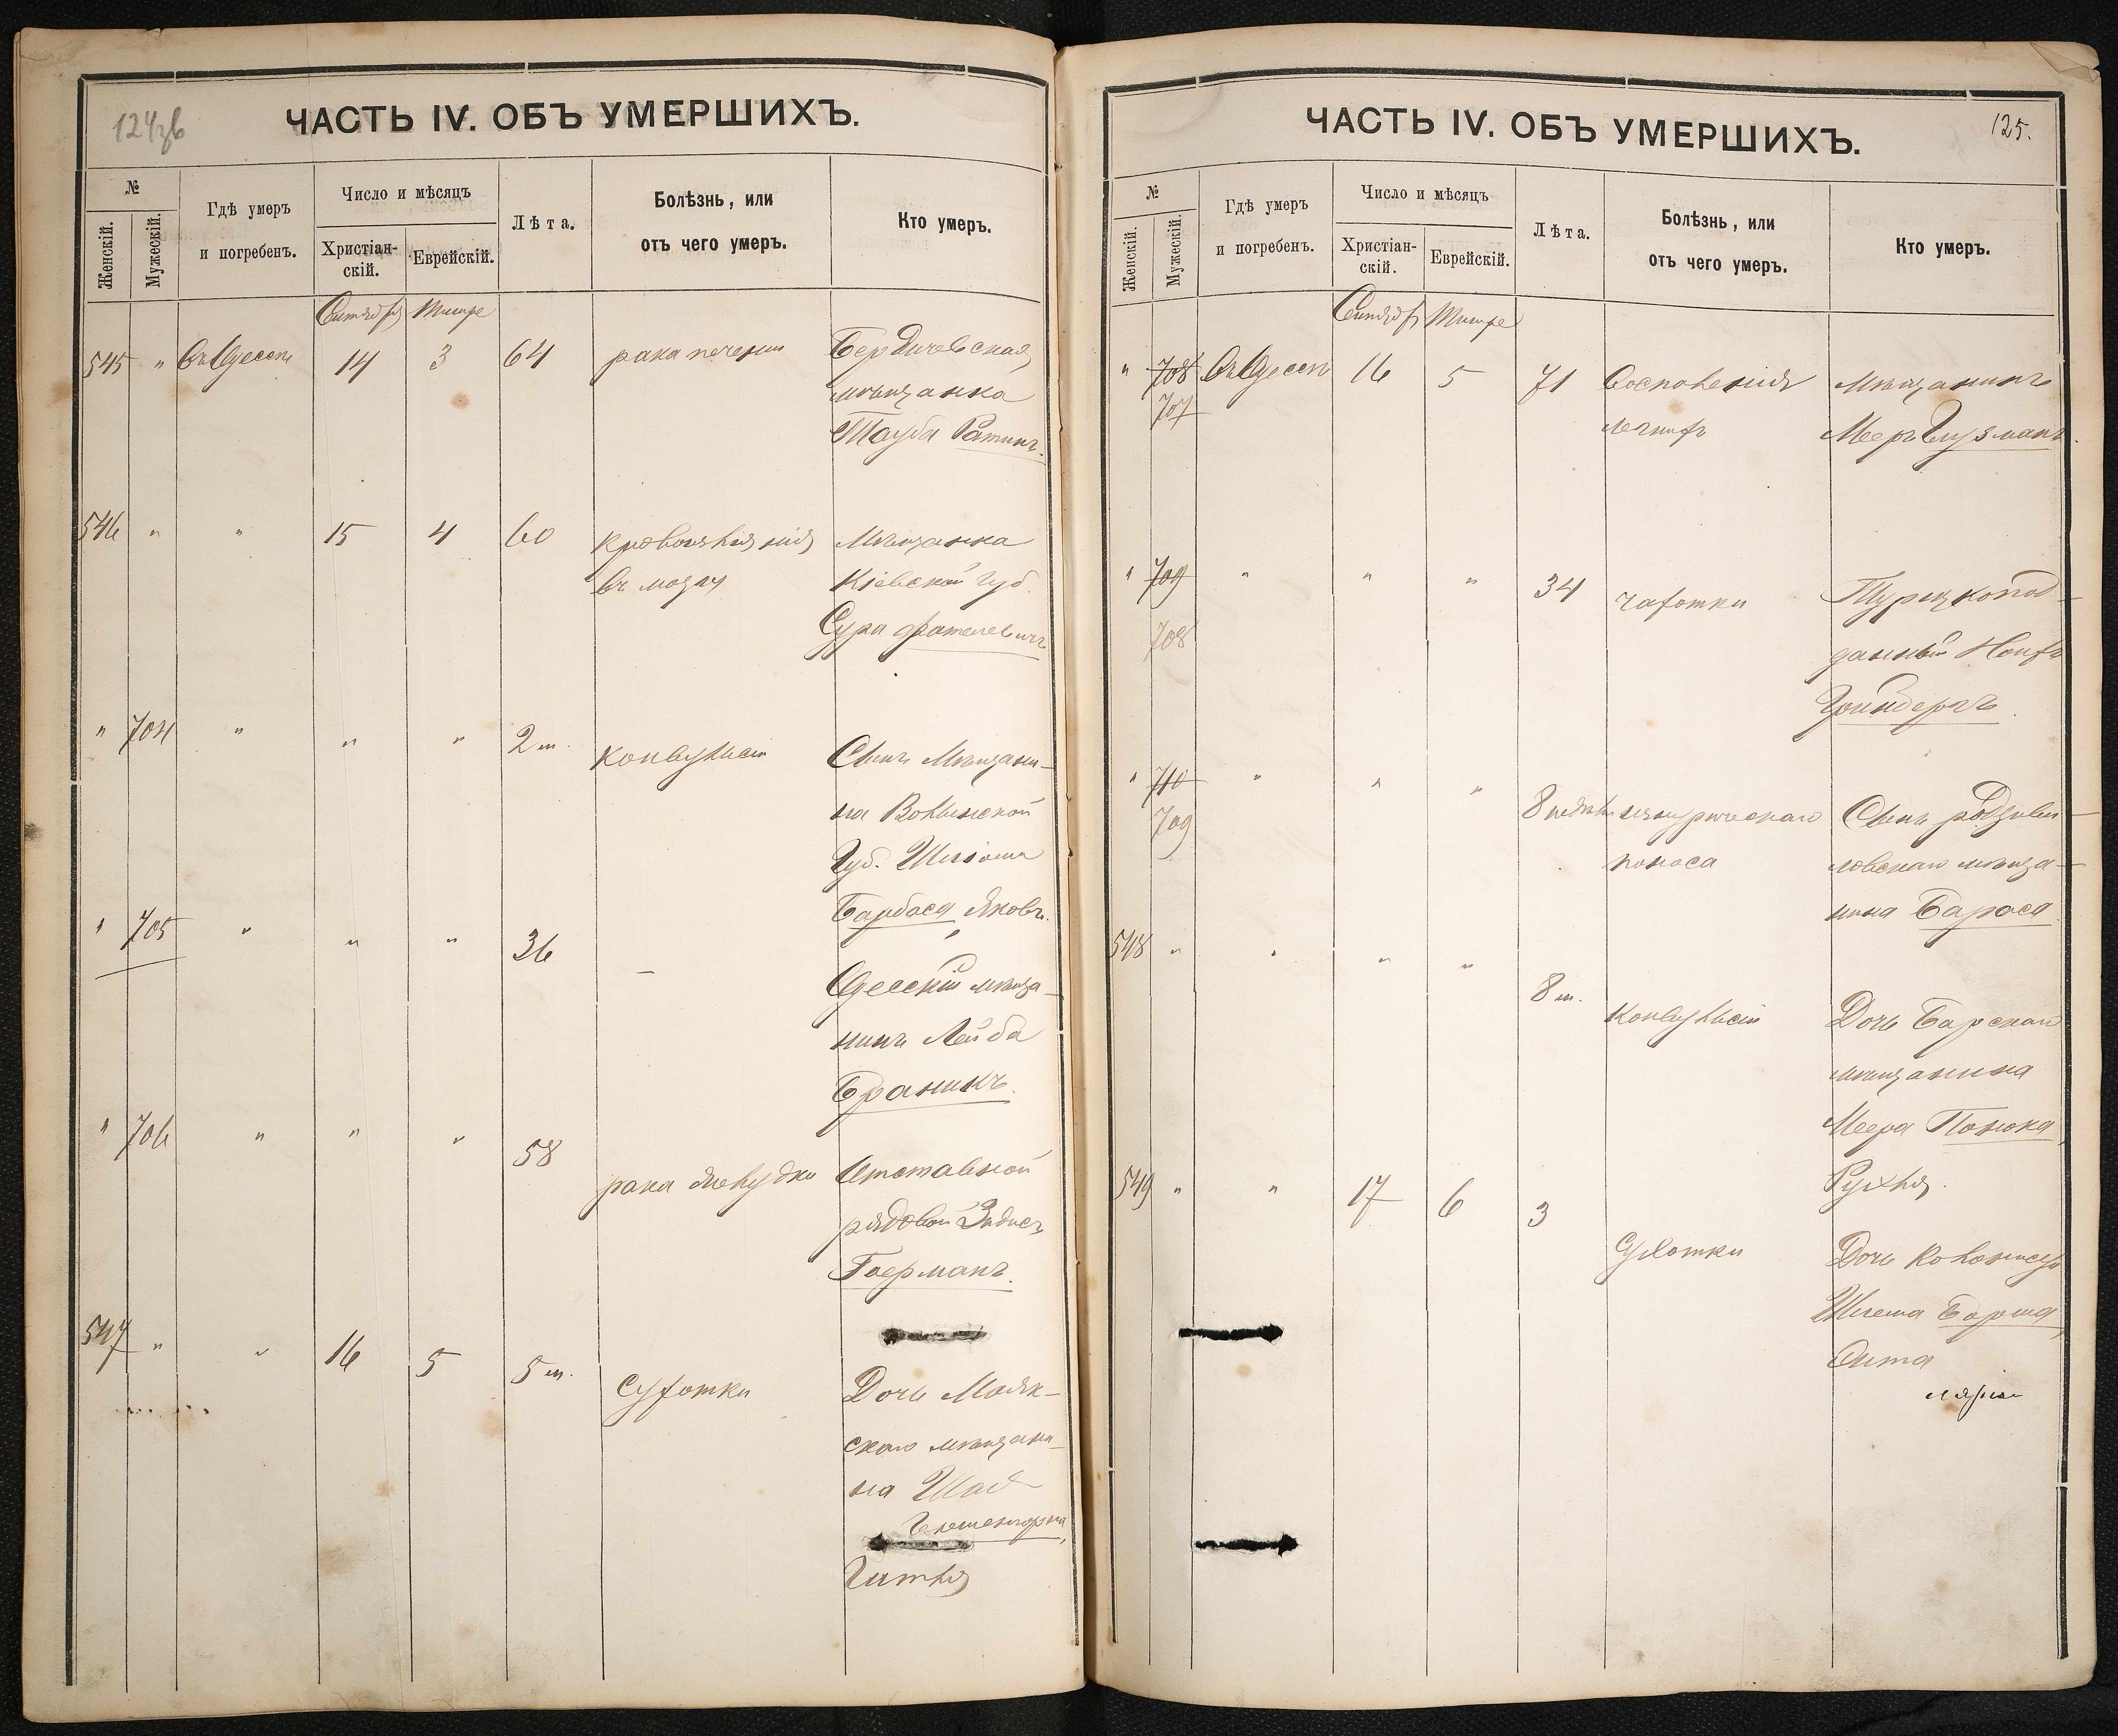 124зв
ЧАСТЬ IV. ОБЪ УМЕРШИХЪ.
№
Женскій.
Мужескій.
Гдѣ умеръ
и погребенъ.
Число и мѣсяцъ
Христіан-
скій.
Еврейскій.
Лѣта.
Болѣзнь, или
отъ чего умеръ.
Кто умеръ.
Сентября Тишре
545 " въ Одессѣ 14 3 64 рака печени Бердичевская
мѣщанка
Тауба
546 " " 15 4 60 кровоизліянія Мѣщанка
въ мозгу Кіевской Губ.
Сура
" 704 " " " 2 м. конвульсіи Сынъ Мѣщани-
на Волынской
Губ.
Барбаса Яковъ.
" 705 " " " 36 — Одесскій мѣща-
нинъ Лейба
Браникъ.
" 706 " " " 58 рака желудка Отставной
рядовой
Гоерманъ.
547 " " 16 5 5 м. Сухотки Дочь Маяк-
скаго мѣщани-
на
Гитля
ЧАСТЬ IV. ОБЪ УМЕРШИХЪ.
125.
№
Женскій.
Мужескій.
Гдѣ умеръ
и погребенъ.
Число и мѣсяцъ
Христіан-
скій.
Еврейскій.
Лѣта.
Болѣзнь, или
отъ чего умеръ.
Кто умеръ.
Сентябр Тишре
" 708 въ Одессѣ 16 5 71 Воспаленія Мѣщанинъ
707 легкихъ Мееръ Гузманъ.
" 709 " " " 34 чахотки Турецкопод-
708 данный
Гринбергъ.
" 710 " " " 8 Сынъ Радзиви-
709 поноса ловскаго мѣща-
нина Бараса
548 " " " " 8 м. Конвульсіи Дочь Барскаго
мѣщанина
Меера Понока,
Рухля.
549 " " 17 6 3 Сухотки Дочь Колониста
Шлема